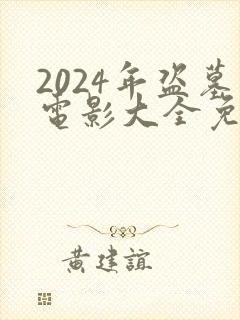 2024年盗墓
电影大全免
黄建谊